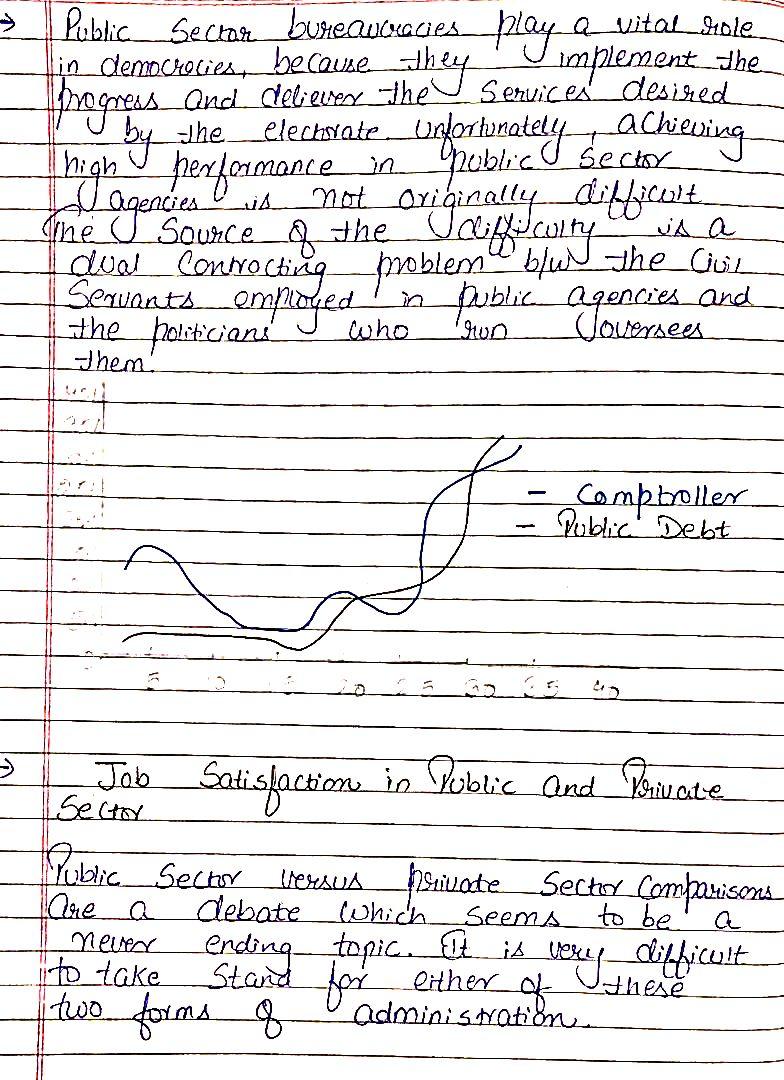 → Public Sector bureaucracies play a vital role
in democrocies, because they implement the
progress and deliever the Services desired
by the electorate Unfortunately, achieving
high performance in public Sector
agencies is not originally difficult
The Source of the difficulty is a
dual Contracting problem b/w the Civil
Servants employed in public agencies and
the politicians who run oversees
them.
- Comptroller
- Public Debt
5 10 15 20 25 30 35 40
→ Job Satisfaction in Public and Private
Sector
Public Sector versus private Sector Comparisons
Are a debate which seems to be a
never ending topic. It is very difficult
to take Stand for either of these
two forms of administration.